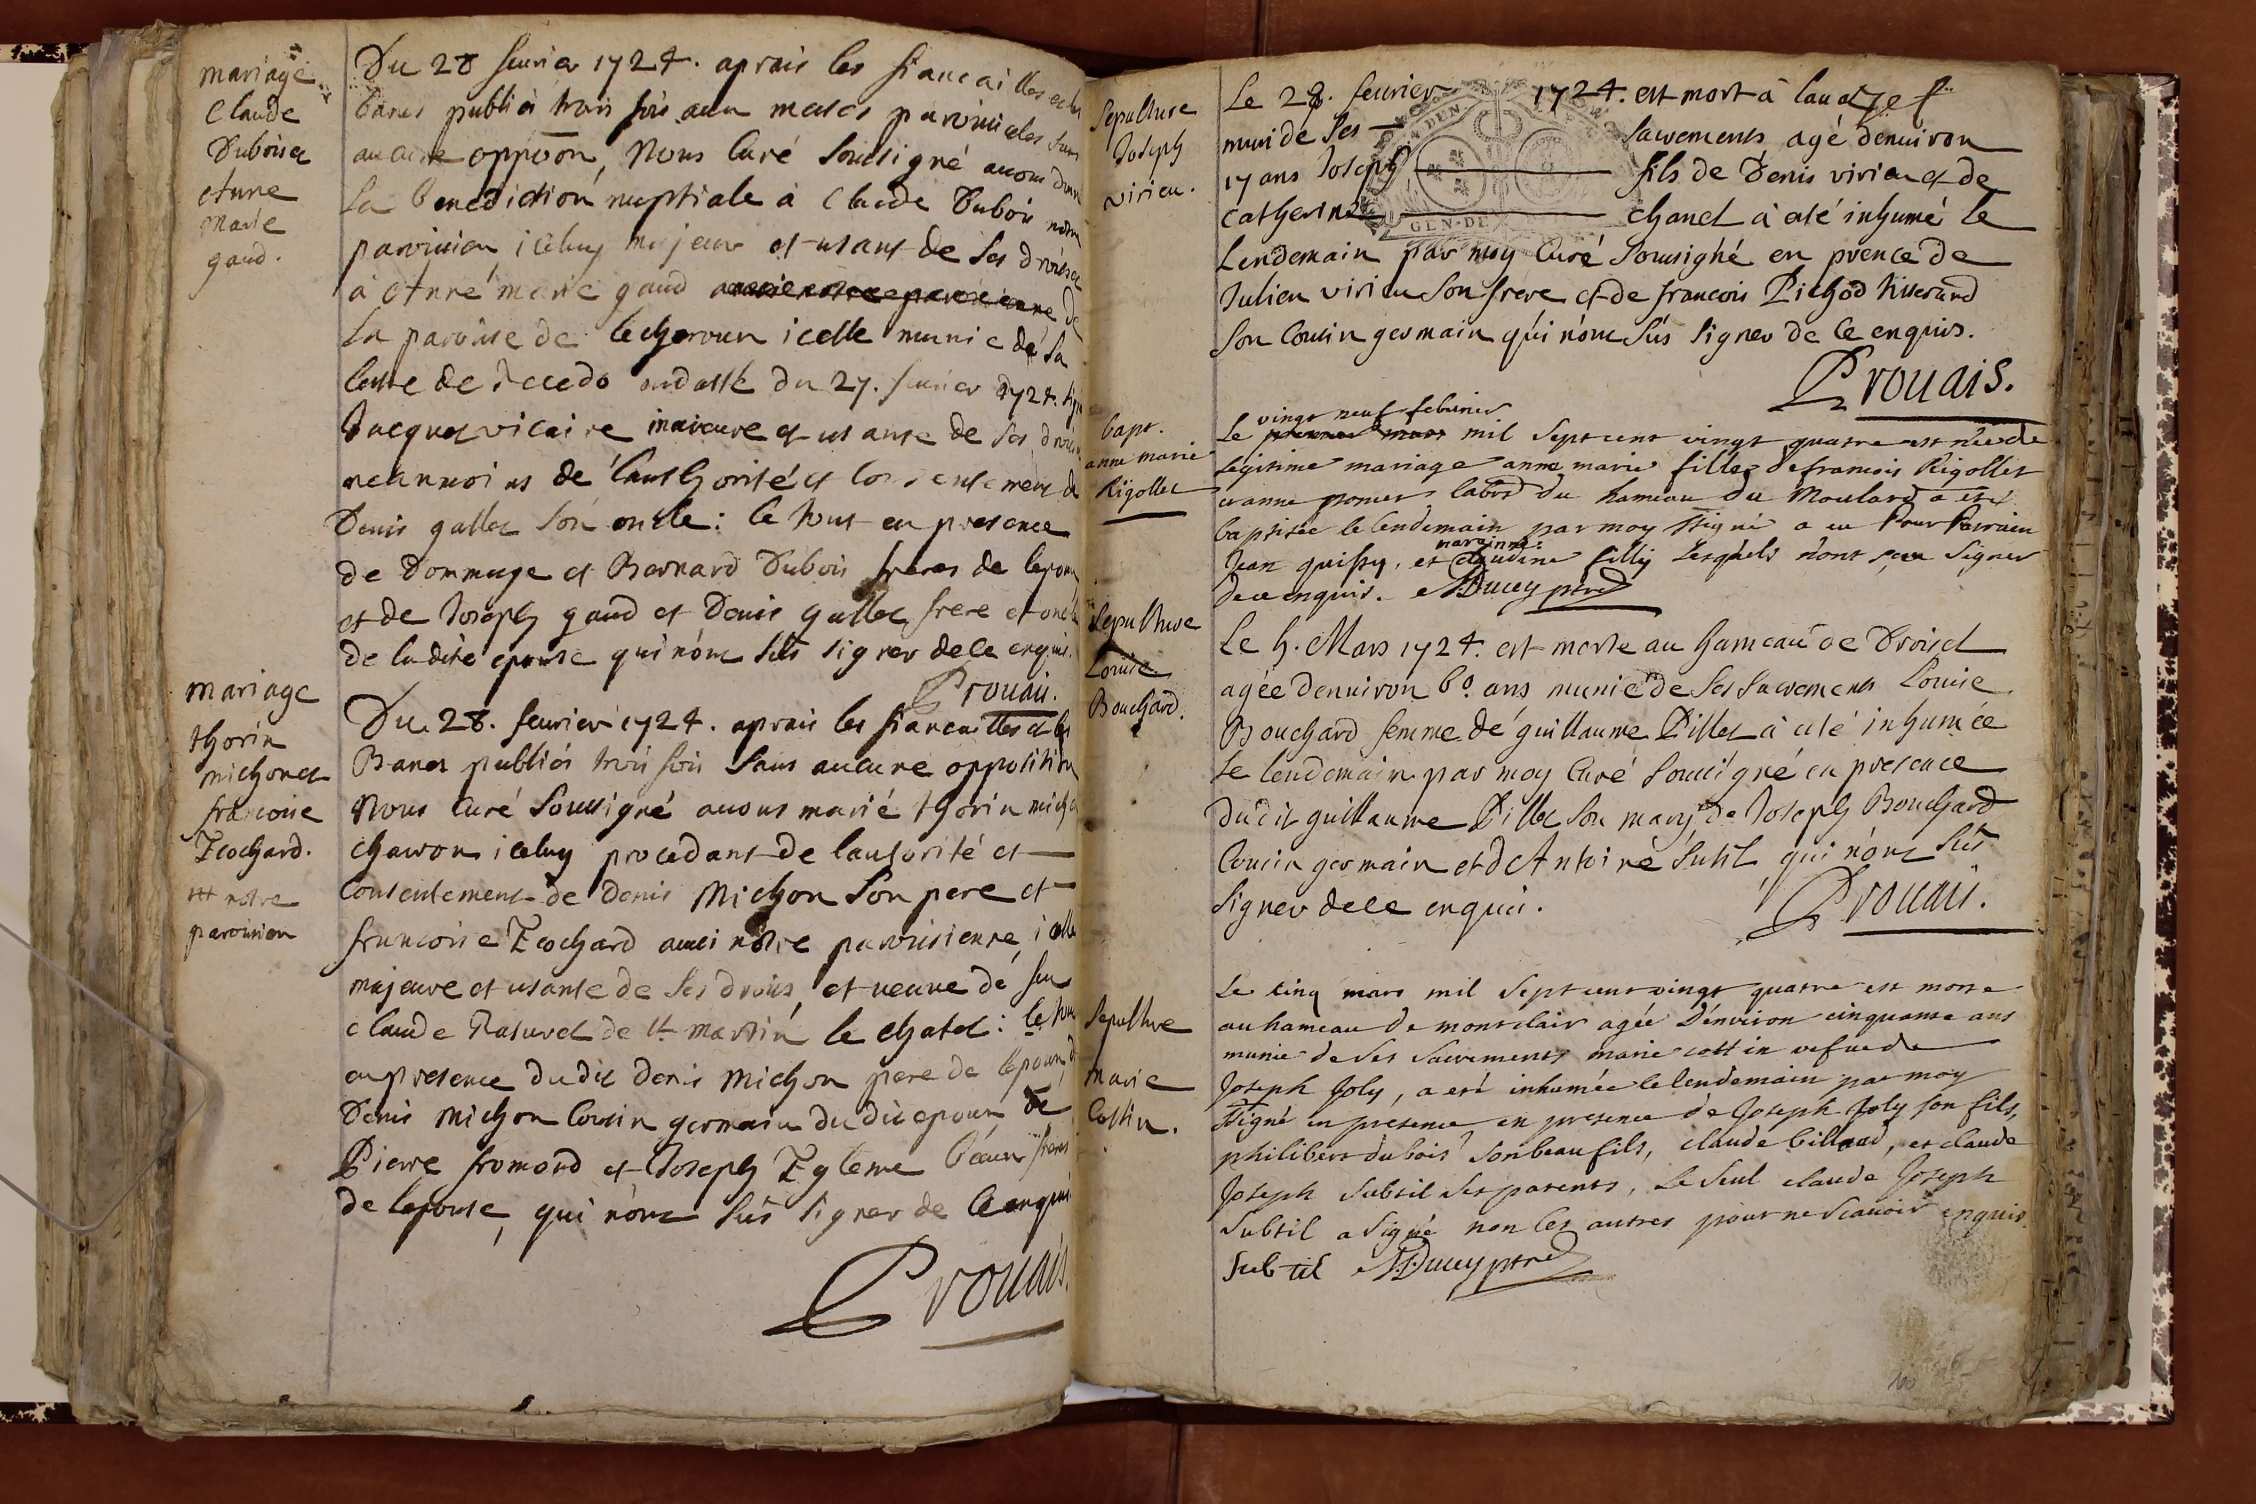 mariage
Claude
Dubois et
Anne
Marie
gaud.
Du 28 feurier 1724. aprais les fiancailles et les
bans publiés trois fois aux messes paroissiales sans
aucune oppõon, Nous Curé soussigné auons donné
la benediction nuptiale à Claude Dubois notre
paroissien iceluy majeur et usant de ses droits et
à Anne marie gaud de
la paroisse de lecheroux icelle munie de sa
lettre de recedo en datte du 27. feurier 1724. signé
Jacquet vicaire maieure et usante de ses droits
neanmoins de l'authorité et consentement de
Denis gallet son oncle: le tout en presence
de Dommage et Bernard Dubois freres de lepoux
et de Joseph gaud et Denis gallet frere et oncle
de ladite epouse qui n'ont sus signer de ce enquis.
Prouais.
mariage
thorin
michon et
francoise
Trochard.
notre
paroissien
Du 28. feurier 1724. aprais les fiancailles et les
Bans publiés trois fois sans aucune opposition
Nous Curé soussigné auons marié thorin michon
charon iceluy procedant de lautorité et
consentement de Denis Michon son pere et
francoise Trochard aussi notre paroissienne, icelle
majeure et usante de ses droits, et veuue de feu
claude Rasurel de st martin le chatel: le tout
en presence dudit denis michon pere de lepoux, de
Denis michon Cousin germain dudit epoux de
Pierre fromond et Joseph Tyleme beaux freres
de lepouse, qui n'ont sus signer de ce enquis
Prouais.
Sepulture
Joseph
virieu.
Le 28. feurier 1724. est mort à
muni de ses sacrements agé denuiron
17 ans Joseph fils de Denis virieu et de
Catherine chanel à eté inhumé le
Lendemain par moy Curé soussigné en prence de
Julien virieu son frere et de francois Pichod tisserand
son Cousin germain qui n'ont sus signer de ce enquis.
Prouais.
bapt.
anne marie
Rigollet
vingt neuf feburier
Le premier mars mil sept cent vingt quatre est née de
legitime mariage anne marie fille de francois Rigollet
et anne pomer labrd du hameau du Moulard a eté
baptisée le lendemain par moy ssigné a eu Pour Parrain
maraine
Jean quissy, et Claudine filly Lesquels n'ont sceu signer
de ce enquis. MDucey ptre
Sepulture
Louise
Bouchard.
Le 4. Mars 1724. est morte au hameau de Droisel
agée denuiron 60. ans munie de ses sacrements Louise
Bouchard femme de guillaume Pillet à eté inhumée
le lendemain par moy Curé soussigné en presence
dudit guillaume Pillet son mary, de Joseph Bouchard
Cousin germain et d'Antoine Sutil qui n'ont sus
signer de ce enquis.
Prouais.
Sepulture
marie
Cottin.
Le cinq mars mil sept cent vingt quatre est morte
au hameau de montclair agée d'environ cinquante ans
munie de ses sacrements marie cottin vefue de
Joseph Joly, a eté inhumée le lendemain par moy
ssigné en presence en presence de Joseph Joly son fils,
philibert dubois son beau fils, claude billoud, et claude
Joseph subtil ses parents, Le seul claude Joseph
subtil a signé non les autres pour ne scauoir enquis
Subtil MDucey ptre